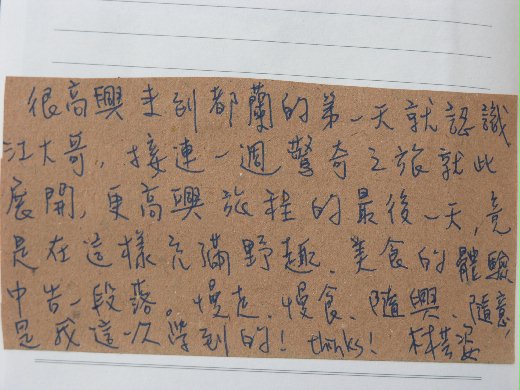 很高興走到都蘭的第一天就認識
江大哥,接連一週驚奇之旅就此
展開,更高興旅程的最後一天,竟
是在這樣充滿野趣、美食的體驗
中告一段落。慢走、慢食、隨興、隨意,
是我這一次學到的! thinks! 林芸姿